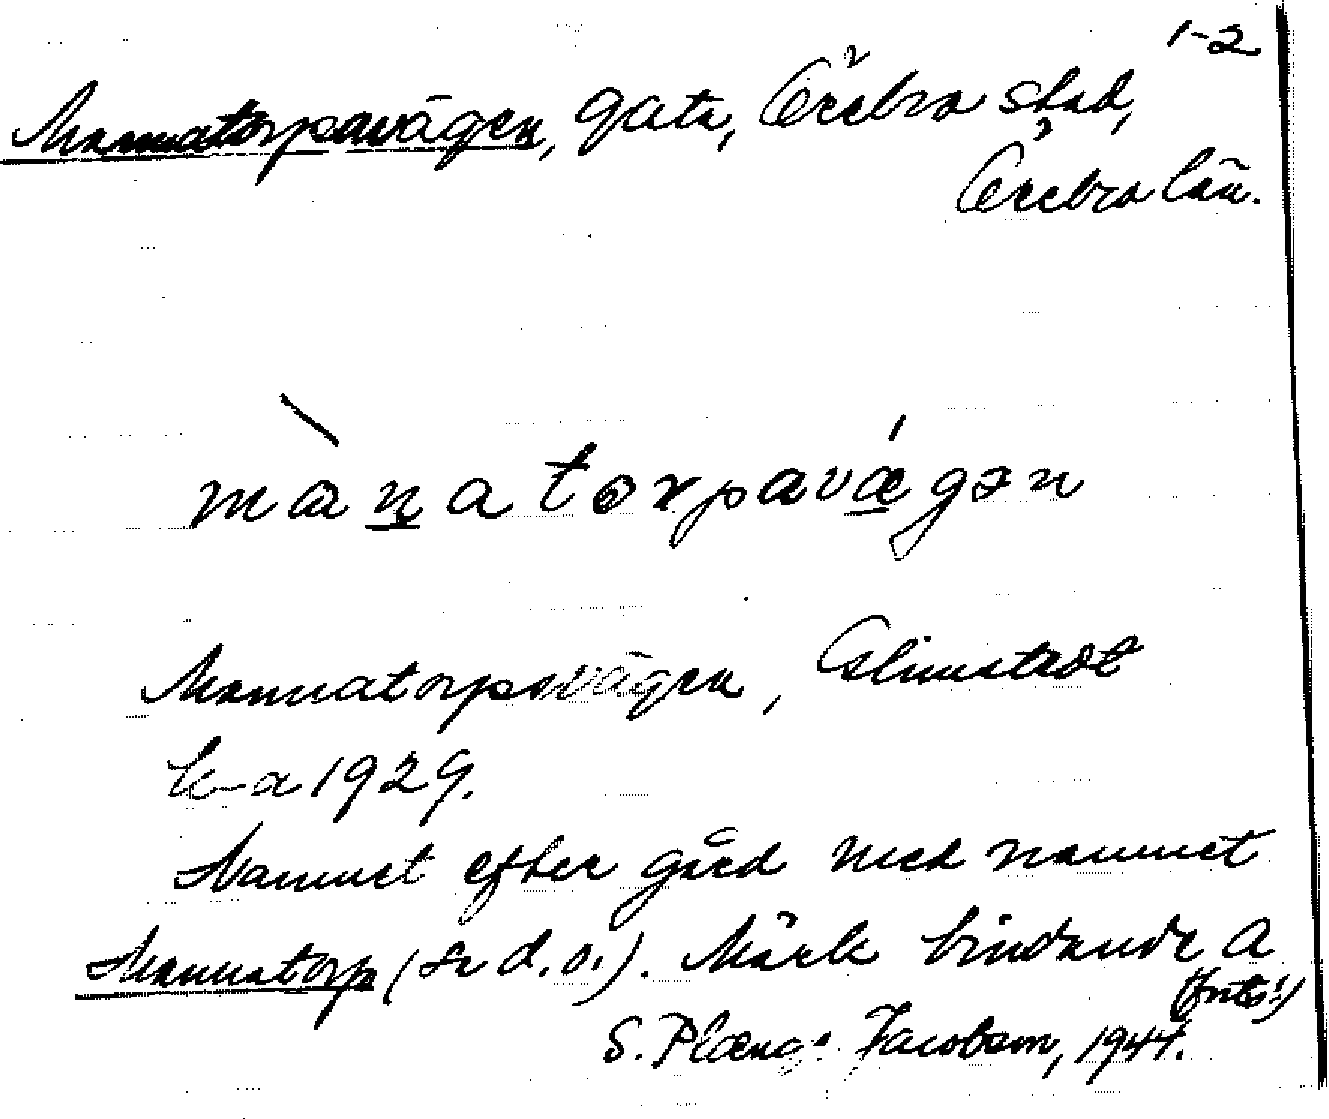 1-2
Mannatorpavägen, gata, Örebro stad,
Örebro län.
mànatorpavǽgən
Mannatorpsvägen, Almstedt
k-a 1929.
Namnet efter gård med namnet
Mannatorp (se d.o.). Märk bindande a
S. Plœng: Jacobson, 1944.